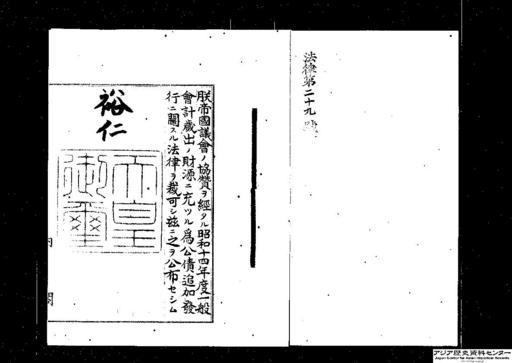 法律第二十九號
朕帝國議會ノ協贊ヲ經タル昭和十四年度一般
會計歲出ノ財源ニ充ツル爲公債追加發
行ニ關スル法律ヲ裁可シ茲ニ之ヲ公布セシム
裕仁
天皇
御璽
アジア歴史資料センター
Japan Center for Asian Historical Records